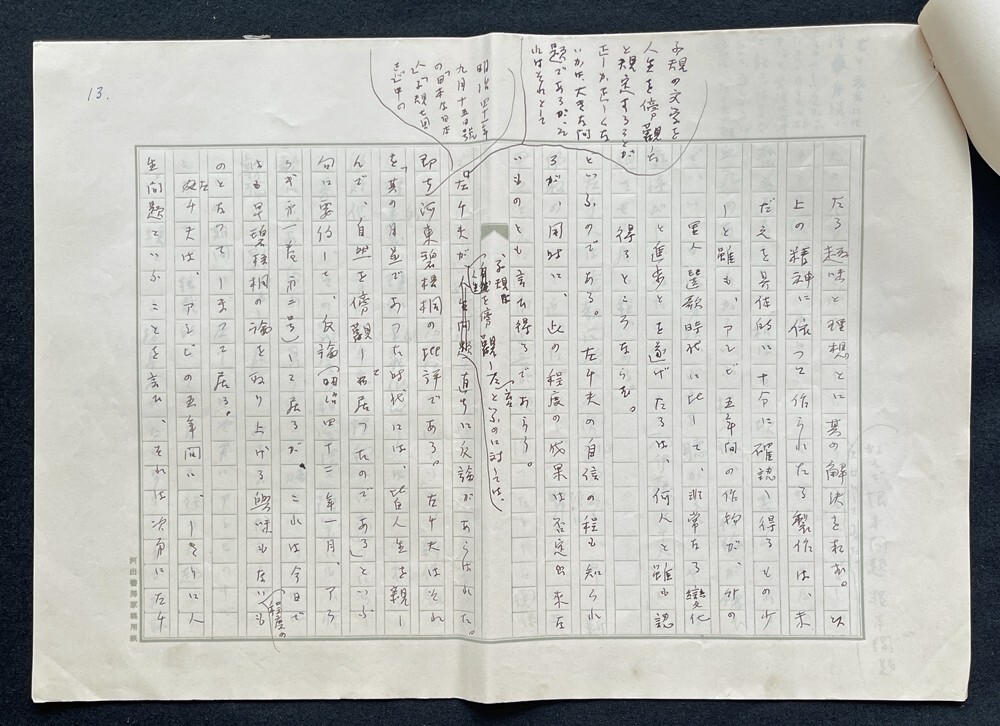 13.
子規の文学を
人生を傍観し
と規定することが
正しかしくな
いかは大きな問
題であるが、そ
れはそれとして
明治四十一年
九月十五日號
の「日本及日本
人」「子規七回
忌」中の
たる趣味と理想とに其の解決を求む。以
上の精神に依つて作られたる製作は、未
だ之を具体的に十分に確認し得るもの少
しと雖も、アシビ五年間の作物が、外の
里人選歌時代に比して、非常なる變化
と進歩とを遂げたるは、何人と雖も認
得るところならむ。
といふのである。左千夫の自信の程も知られ
るが、同時に、此の程度の成果は否定出来な
いものとも言ひ得るであらう。
子規は
人生を傍観したと言ふのに対しては、
左千夫が人生問題直ちに反論があらはれた。
即ち河東碧梧桐の批評である。左千夫はそれ
を「其の月並であつた時代には、皆人生を観し
んで、自然を傍観して居つたのである」といふ
句に要約して、反論(明治四十二年一月、アララ
ギ第一巻第二号)して居るが、これは今日で
は早碧梧桐の論を取り上げる興味もない程度の
も
のとなつてしまつて居る。
左千夫は、アシビの五年間に、しきりに人
生問題といふことを言ひ、それは次第に左千
河出書房原稿用紙